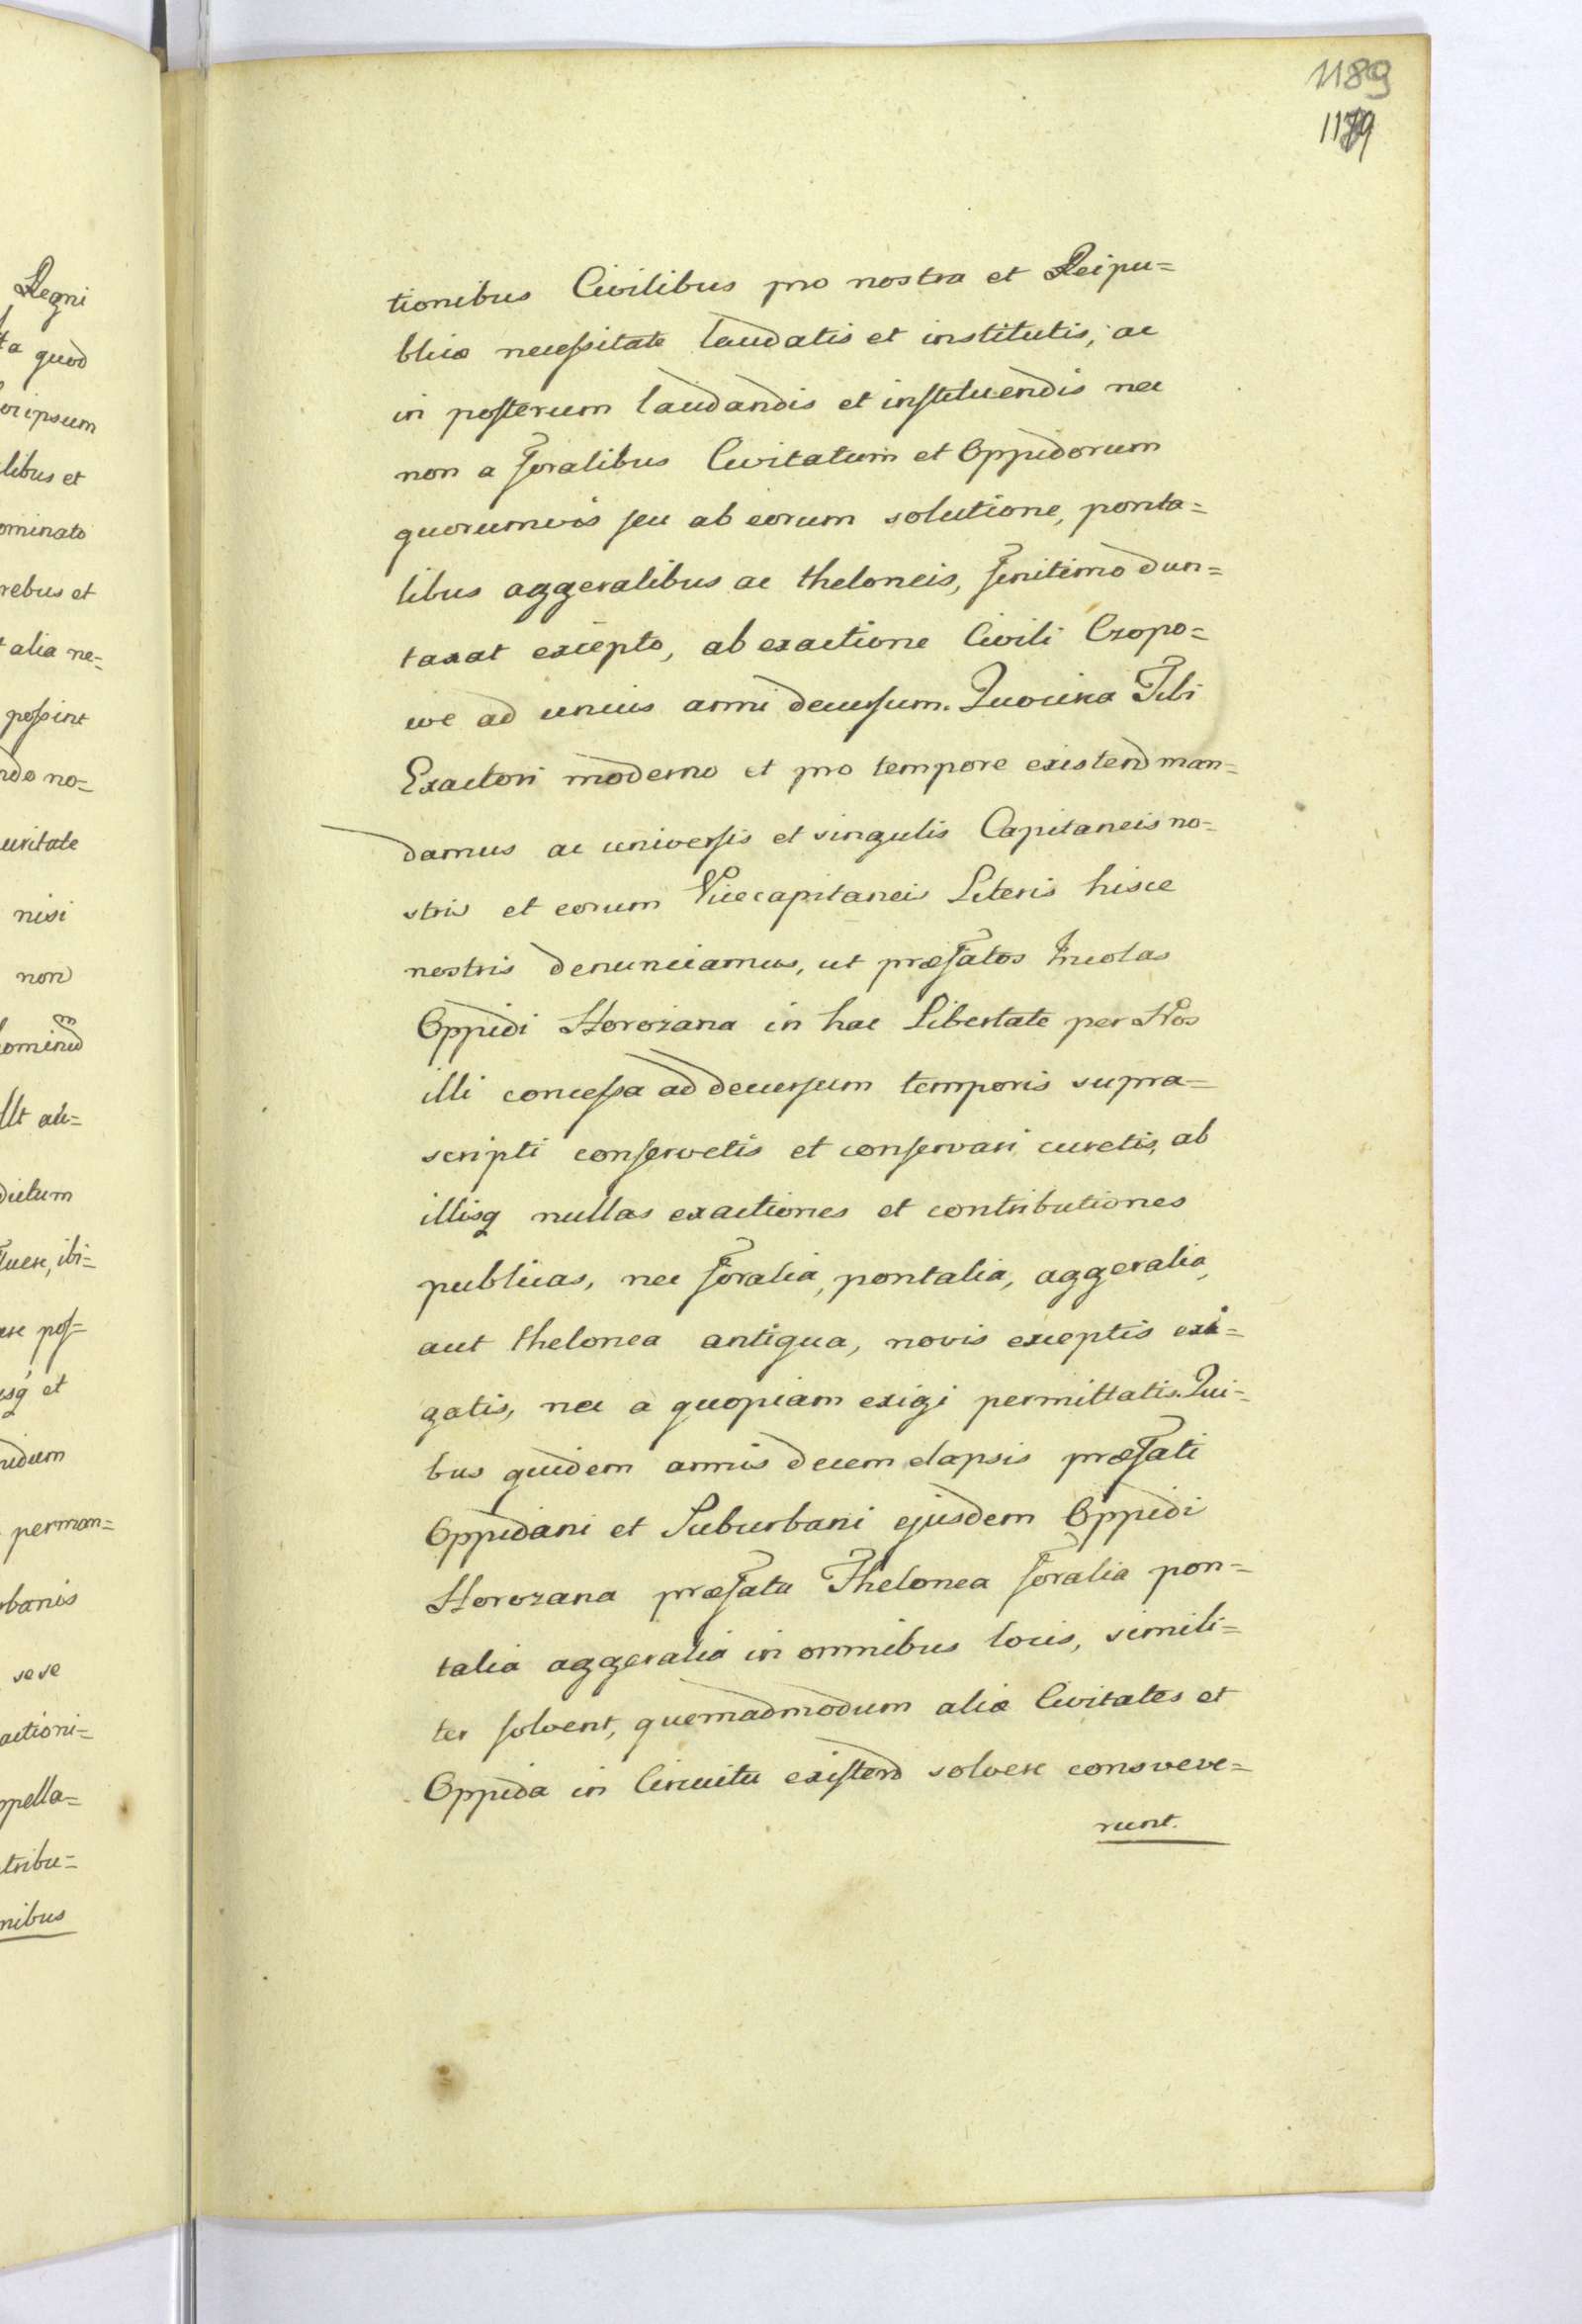 1189
1179
tionibus Civilibus pro nostra et Reipu=
blicæ necessitate laudatis et institutis, ac
in posterum laudandis et instituendis nec
non a foralibus Civitatum et Oppidorum
quorumvis seu ab eorum solutione, ponta=
libus aggeralibus ac theloneis, finitimo dun=
taxat excepto, ab exactione Civili Czopo=
we ad unius anni decursum. Quocirca Tibi
Exactori moderno et pro tempore existend man=
damus ac universis et singulis Capitaneis no=
stris et eorum Vicecapitaneis Literis hisce
nostris denunciamus, ut præfatos Incolas
Oppidi Horozana in hac Libertate per Nos
illi concessa ad decursum temporis supra=
scripti conservetis et conservari curetis, ab
illisq nullas exactiones et contributiones
publicas, nec foralia, pontalia, aggeralia,
aut thelonea antiqua, novis exceptis exi=
gatis, nec a quopiam exigi permittatis. Qui=
bus quidem annis decem elapsis præfati
Oppidani et Suburbani ejusdem Oppidi
Horozana præfata Thelonea foralia pon=
talia aggeralia in omnibus locis, simili=
ter solvent, quemadmodum aliæ Civitates et
Oppida in Circuitu existend solvere consveve=
runt.
Regni
ta quod
or ipsum
libus et
ominato
rebus et
alia ne=
possint
ndo no=
uritate
nisi
non
dictum
ibi=
pos=
et
perman=
rbanis
sese
actioni=
ppella=
tribu=
nibus